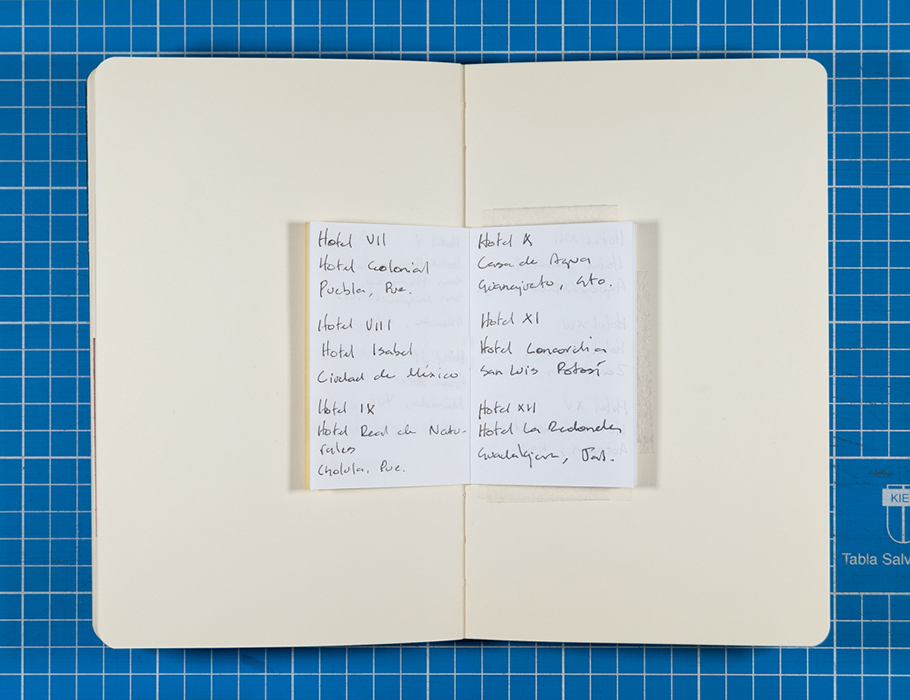 Hotel VII
Hotel Colonial
Puebla, Pue.
Hotel VIII
Hotel Isabel
Ciudad de México
Hotel IX
Hotel Real de Natu-
rales
Cholula, Pue.
Hotel X
Casa de Agua
Guanajuato, Gto.
Hotel XI
Hotel Concordia
San Luis Potosí
Hotel XII
Hotel La Rotonda
Guadalajara, Jal.
KIE
Tabla Salv